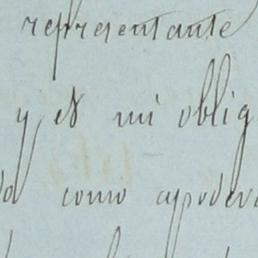 representante
y es mi oblig
como apodera